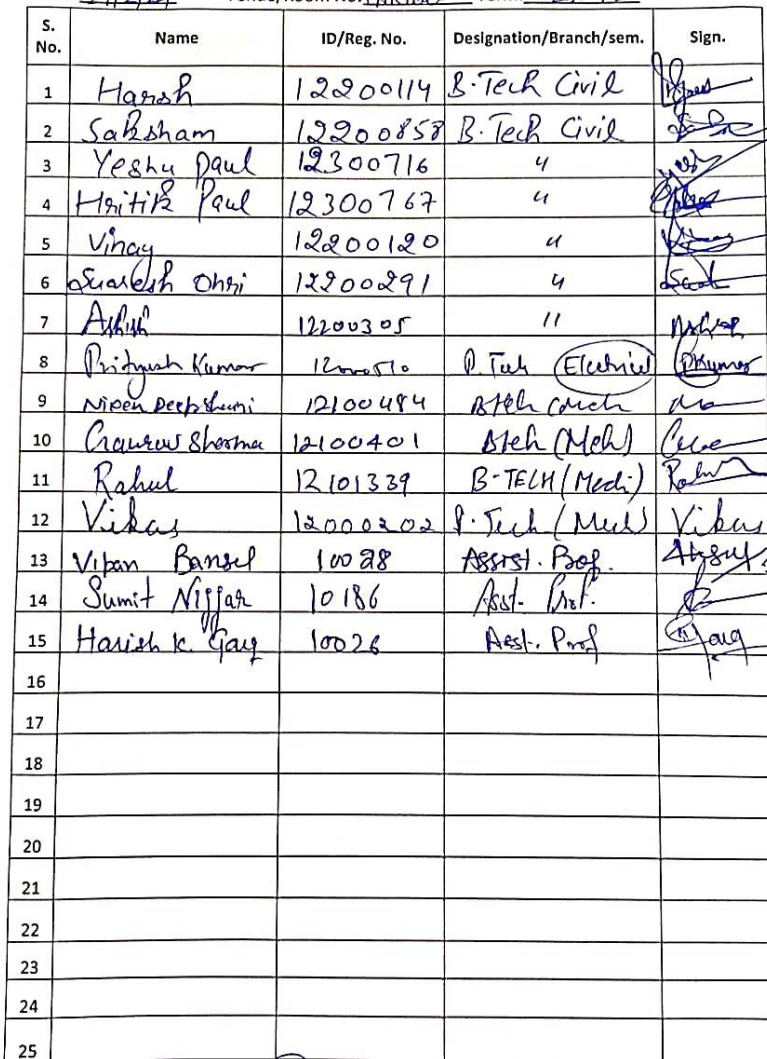 Venue/Room No.
S. No. Name ID/Reg. No. Designation/Branch/sem. Sign.
1 Harsh 12200114 B.Tech Civil
2 Saksham 12200858 B.Tech Civil
3 Yeshu Paul 12300716 "
4 Hritik Paul 12300767 "
5 Vinay 12200120 "
6 Ohri 12200291 "
7 Ashish 12200305 "
8 Prityush Kumar B.Tech (Electrical) PKumar
9 Nipen 12100484
10 Gaurav Sharma 12100401 Btech (Mech)
11 Rahul 12101339 B-TECH (Mech)
12 Vikas 12000202 B.Tech (Mech) Vikas
13 Vipan Bansel 10028 Assist. Prof.
14 Sumit Nijjar 10186 Asst. Prof.
15 Harish K. Garg 10026 Asst. Prof Garg
16
17
18
19
20
21
22
23
24
25